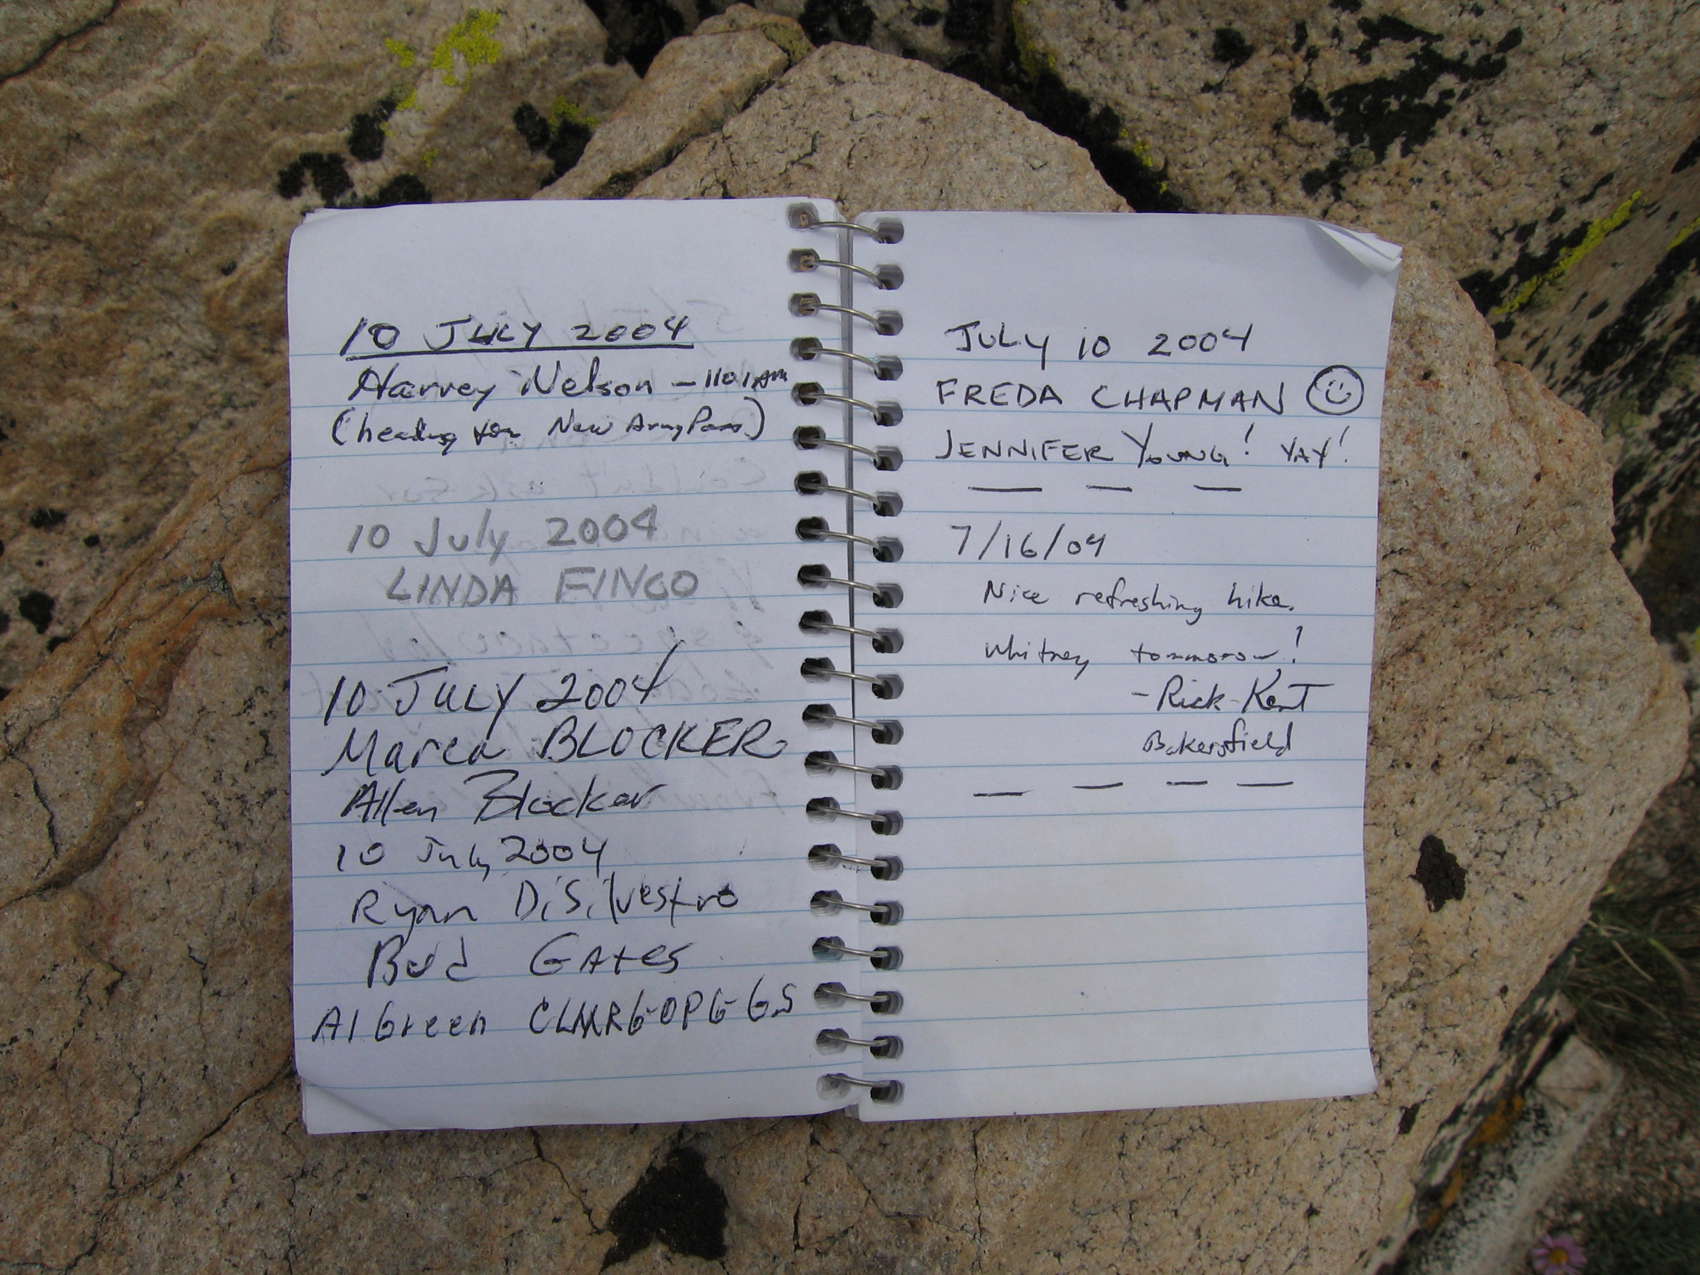 10 JULY 2004
Harvey Nelson - 1101 AM
(heading for New Army Pass)
10 July 2004
LINDA FINGO
10 JULY 2004
Marea BLOCKER
Allen Blocker
10 July 2004
Ryan DiSilvestro
Bud GAtes
Al Green CLMRG-OPG-GS
JULY 10 2004
FREDA CHAPMAN
JENNIFER YOUNG! YAY!
7/16/04
Nice refreshing hike.
Whitney tommorow!
-Rick Kent
Bakersfield